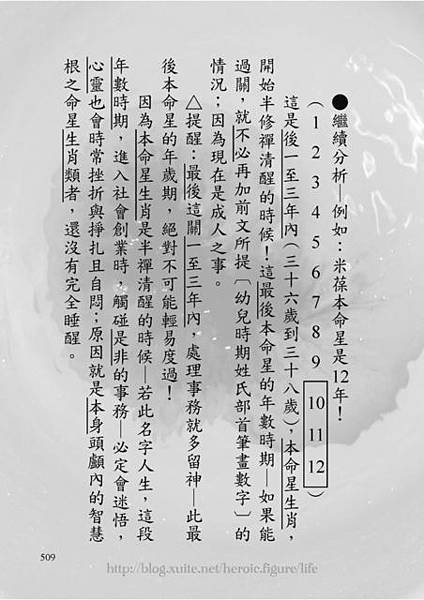 ●繼續分析—例如：米葆本命星是12年！
（1 2 3 4 5 6 7 8 9 10 11 12）
這是後一至三年內（三十六歲到三十八歲），本命星生肖，
開始半修禪清醒的時候！這最後本命星的年數時期—如果能
過關，就不必再加前文所提〔幼兒時期姓氏部首筆畫數字〕的
情況；因為現在是成人之事。
△提醒：最後這關一至三年內，處理事務就多留神—此最
後本命星的年歲期，絕對不可能輕易度過！
因為本命星生肖是半禪清醒的時候—若此名字人生，這段
年數時期，進入社會創業時，觸碰是非的事務—必定會迷悟，
心靈也會時常挫折與掙扎且自問；原因就是本身頭顱內的智慧
根之命星生肖類者，還沒有完全睡醒。
509
http://blog.xuite.net/heroic.figure/life